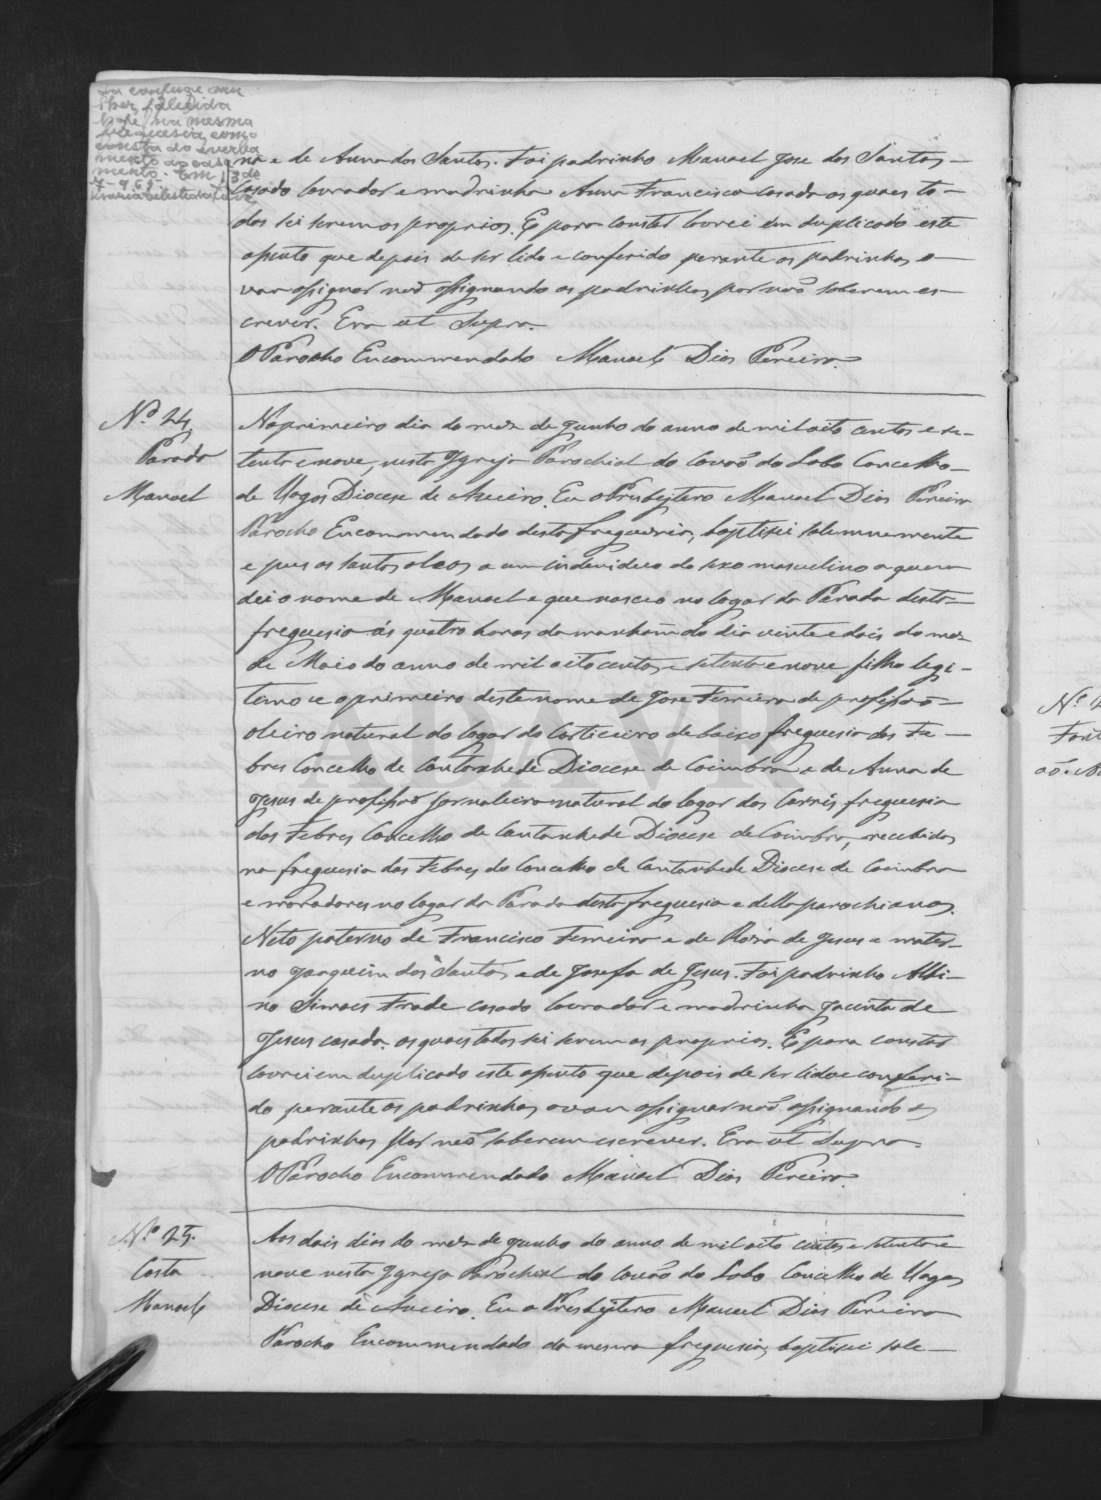 sua conjuge mu
lher, falecida
hoje na mesma
freguesia como
consta do averba
mento ao casa
mento. Em 13 de
7-96
na e de Anna dos Santos. Foi padrinho Manoel Jose dos Santos
casado lavrador e madrinha Anna Francisca casada os quaes to-
dos sei serem os proprios. E para constar lavrei em duplicado este
assento que depois de ser lido e conferido perante os padrinhos o
vou assignar não assignando os padrinhos por não saberem es-
crever. Era ut Supra.
O Parocho Encommendado Manoel Dias Pereira.
Nº 24
Parada
Manoel
No primeiro dia do mez de Junho do anno de mil oito centos e se-
tenta e nove, nesta Igreja Parochial do Covão do Lobo Concelho
de Vagos Diocese de Aveiro. Eu o Presbytero Manoel Dias Pereira
Parocho Encommendado desta freguesia, baptisei solemnemente
e pus os santos oleos a um individuo do sexo masculino a quem
dei o nome de Manoel e que nasceo no logar da Parada desta
freguesia ás quatro horas da manham do dia vinte e dois do mez
de Maio do anno de mil oitocentos e setenta e nove filho legi-
timo e o primeiro deste nome de Jose Ferreira de profissão
oleiro natural do logar do Corticeiro de baixo freguesia das Fe-
bres Concelho de Cantanhede Diocese de Coimbra e de Anna de
Jesus de profissão jornaleira natural do logar dos freguesia
das Febres Concelho de Cantanhede Diocese de Coimbra, recebidos
na freguesia das Febres do Concelho de Cantanhede Diocese de Coimbra
e moradores no logar da Parada desta freguesia e della parochianos.
Neto paterno de Francisco Ferreira e de Rosa de Jesus e mater-
no Joaquim dos Santos e de Josefa de Jesus. Foi padrinho Albi-
no Simoes Frade casado lavrador e madrinha Jacinta de
Jesus casada. os quaes todos sei serem os proprios. E para constar
lavrei em duplicado este assento que depois de ser lido e conferi-
do perante os padrinhos o vou assignar não assignando os
padrinhos por não saberem escrever. Era ut Supra.
O Parocho Encommendado Manoel Dias Pereira.
Nº 25.
Costa
Manoel
Aos dois dias do mez de Junho do anno de mil oito centos e setenta e
nove nesta Igreja Parochial do Covão do Lobo Concelho de Vagos
Diocese de Aveiro. Eu o Presbytero Manoel Dias Pereira
Parocho Encommendado da mesma freguesia, baptisei sole-